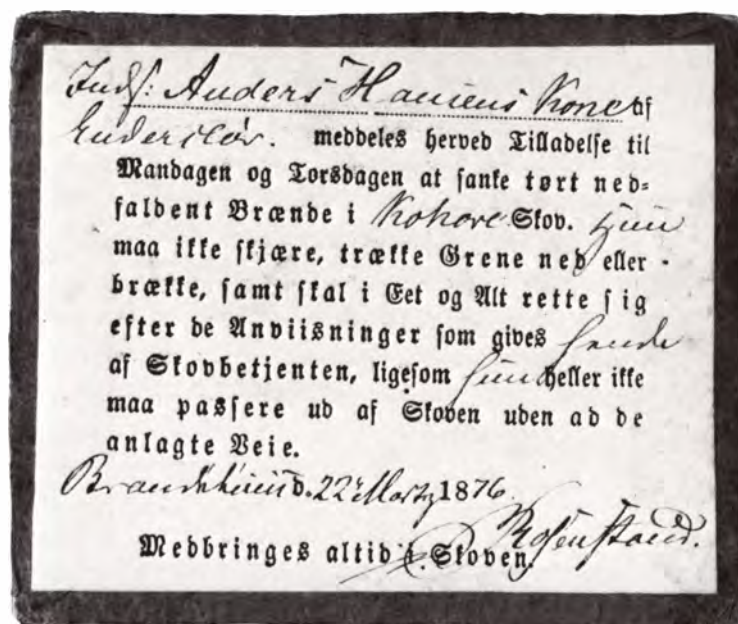 Inds: Anders Hansens Kone af
Enderslev. meddeles herved Tilladelse til
Mandagen og Torsdagen at sanke tørt ned=
faldent Brænde i Kohave Skov. Hun
maa ikke skjære, trække Grene ned eller
brække, samt skal i Eet og Alt rette sig
efter de Anviisninger som gives hende
af Skovbetjenten, ligesom hun heller ikke
maa passere ud af Skoven uden ad de
anlagte Veie.
d. 22 Marts 1876.
Rosenstand.
Medbringes altid i Skoven.